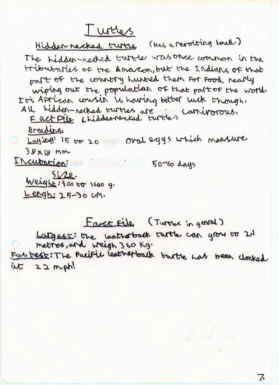 Turtles
Hidden-necked turtle (has a revolting look)
The hidden-necked turtle was once common in the
tributaries of the Amazon, but the Indians of that
part of the country hunted them for food, nearly
wiping out the population of that part of the world.
It's African cousin is having better luck though.
All hidden-necked turtles are carnivorous.
Fact File (hidden necked turtle)
Breeding
Laying: 15 to 20 oval eggs which measure
mm
Incubation: 50-60 days
Size
Weight: to g.
Length: 25-30 cm.
Fact File (Turtles in general)
Largest: the leatherback turtle can grow to 2.1
metres, and weigh 360 kg.
Fastest: The Pacific leatherback turtle has been clocked
at 22 mph!